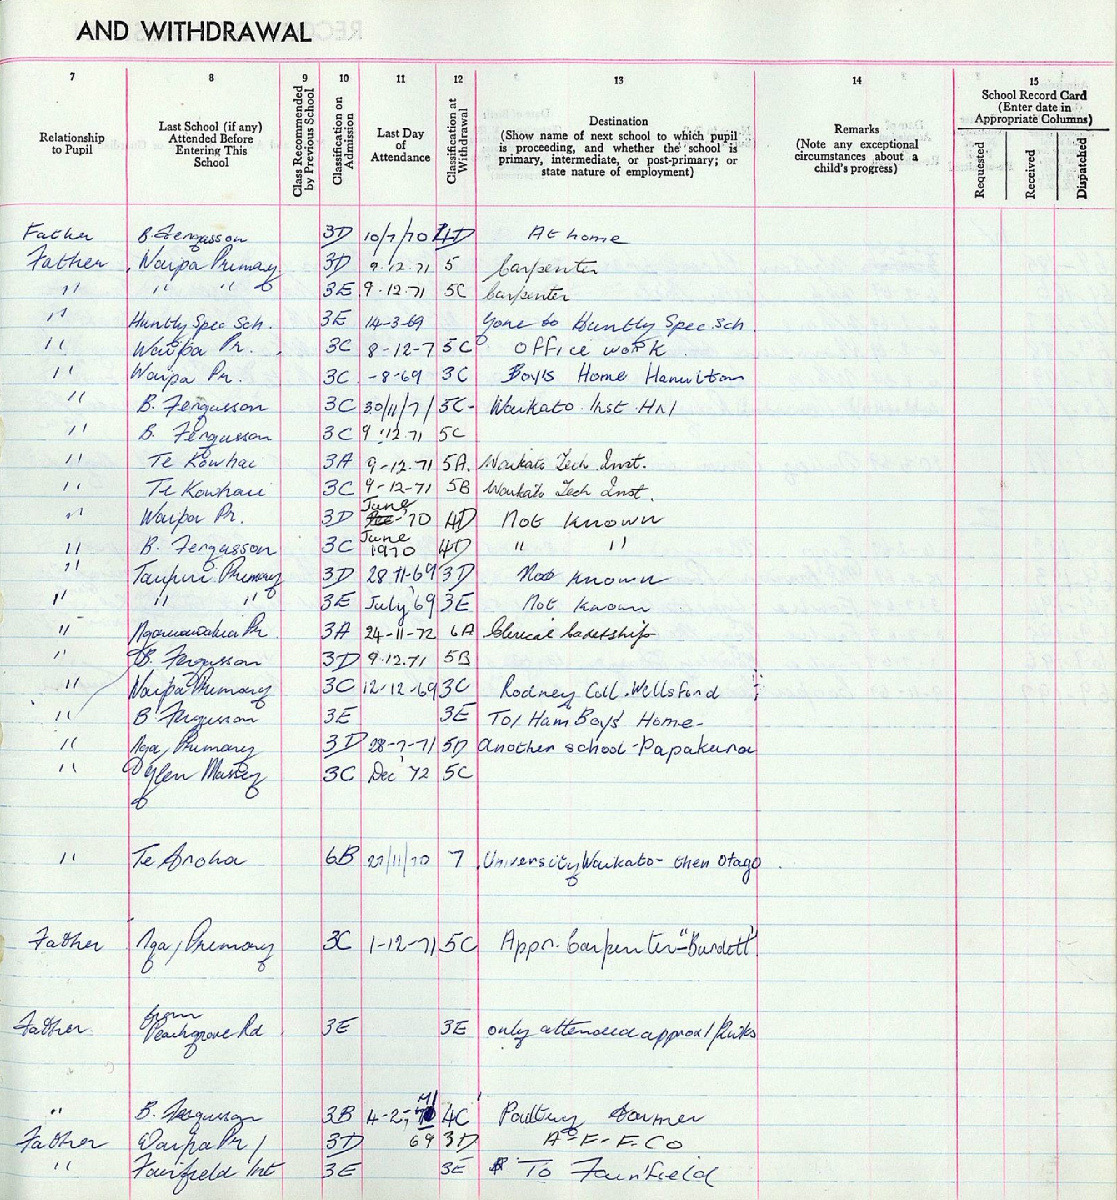 AND WITHDRAWAL
7 8 9 10 11 12 13 14 15
Relationship to Pupil
Last School (if any) Attended Before Entering This School
Class Recommended by Previous School
Classification on Admission
Last Day of Attendance
Classification at Withdrawal
Destination (Show name of next school to which pupil is proceeding, and whether the school is primary, intermediate, or post-primary; or state nature of employment)
Remarks (Note any exceptional circumstances about a child's progress)
School Record Card (Enter date in Appropriate Columns)
Requested Received Dispatched
Father B. Fergusson 3D 10/7/70 4D At home
Father Waipa Primary 3D 9.12.71 5 Carpenter
" " " 3E 9-12.71 5C Carpenter
" Huntly Spec Sch. 3E 14-3-69 Gone to Huntly Spec. Sch
" Waipa Pr. 3C 8-12-7 5C Office work
" Waipa Pr. 3C -8-69 3C Boys Home Hamilton
" B. Fergusson 3C 30/11/71 5C- Waikato Inst. Hn
" B. Fergusson 3C 9.12.71 5C
" Te Kowhai 3A 9-12-71 5A. Waikato Tech Inst.
" Te Kowhai 3C 9-12-71 5B Waikato Tech Inst.
" Waipa Pr. 3D June '70 4D Not Known
" B. Fergusson 3C June 1970 4D " "
" Taupiri Primary 3D 28 11-69 3D Not known
" " " 3E July '69 3E Not Known
" Ngaruawahia Pr. 3A 24-11-72 6A Clerical Cadetship
" B. Fergusson 3D 9.12.71 5B
" Waipa Primary 3C 12-12-69 3C Rodney Coll. Wellsford
" B Fergusson 3E 3E To Ham Boys' Home-
" Nga, Primary 3D 28-7-71 5D Another school - Papakura
" Glen Massey 3C Dec '72 5C
" Te Aroha 6B /11/70 7 University Waikato - then Otago
Father Nga, Primary 3C 1-12-71 5C Appr. Carpenter - "Burdett"
Father from Peachgrove Rd 3E 3E only attended approx 1/
" B. Fergusson 3B 4-2- 4C Poultry farmer
Father Waipa Pr 3D 69 3D A-F-F-CO
" Fairfield Int 3E 3E To Fairfield